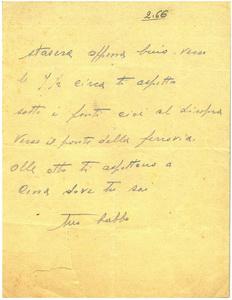 2.66
stasera appena buio verso
le 7 1/2 circa ti aspetto
sotto i ponti cioè al disopra
verso il ponte della ferrovia.
Alle otto ti aspettano a
cena dove tu sai
tuo babbo